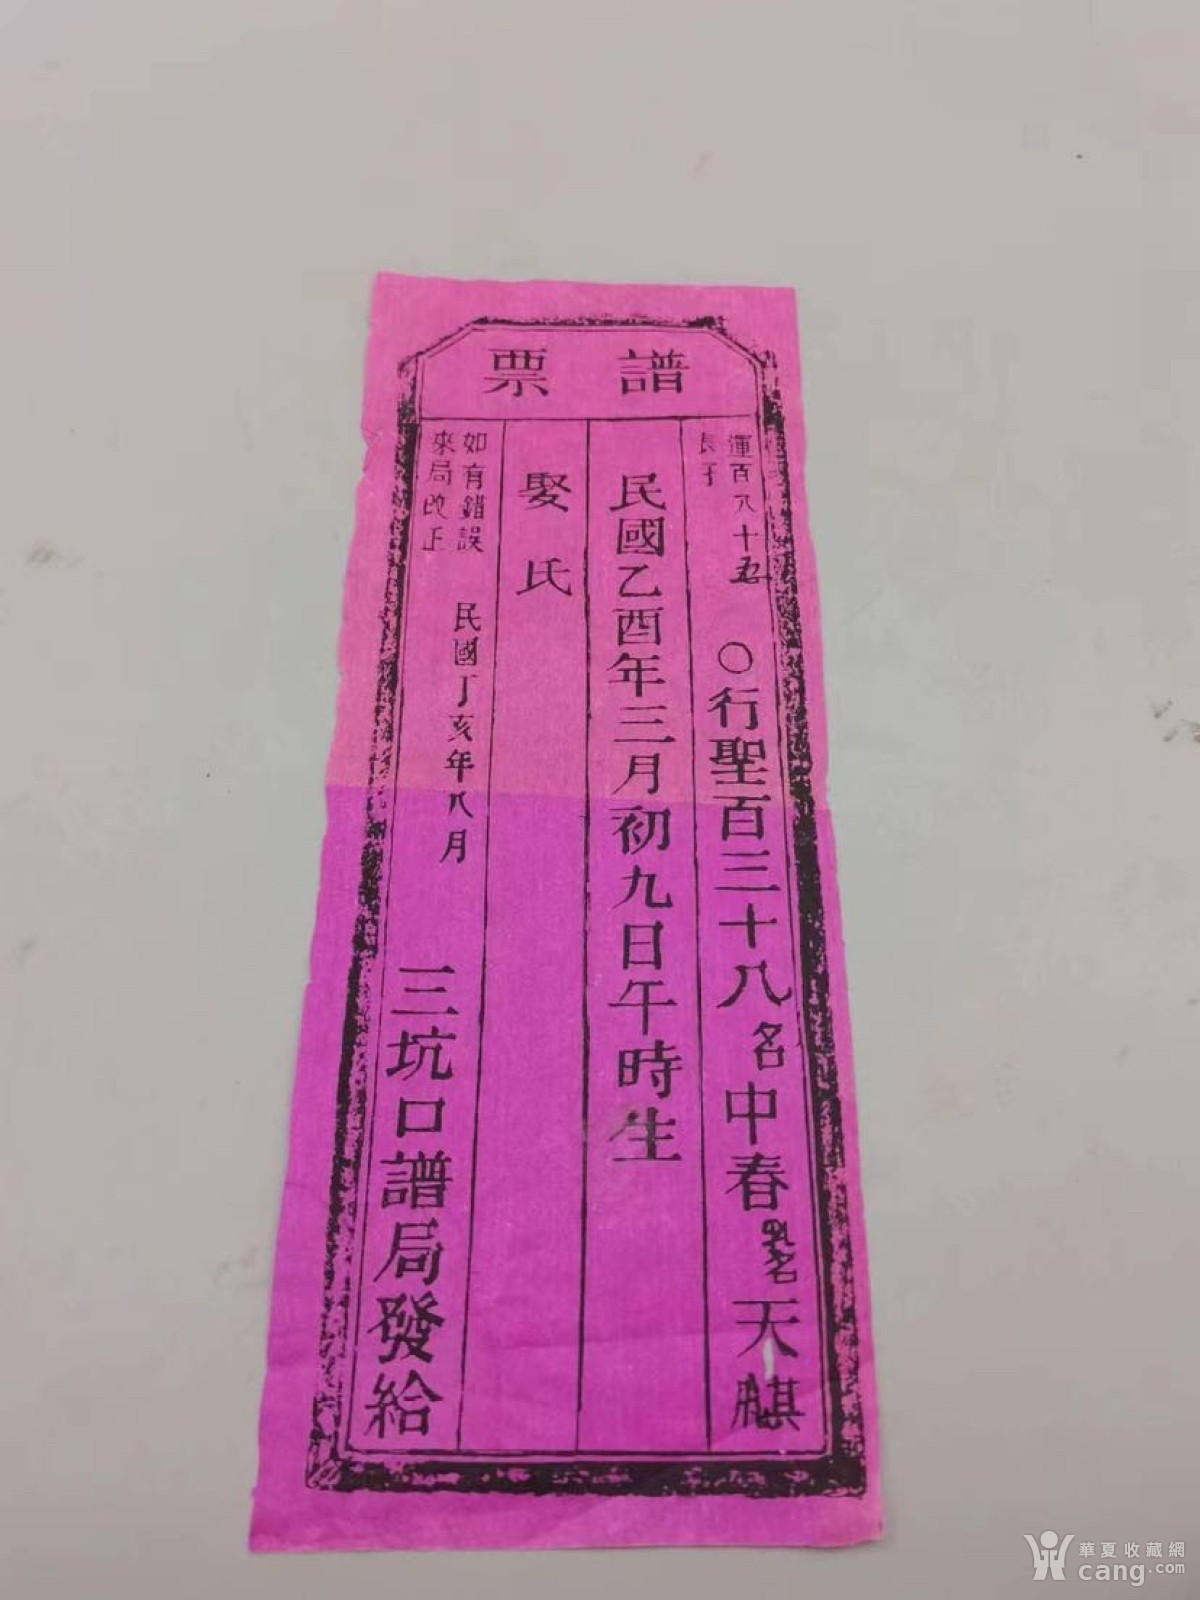 譜票
運百八十五
長子
○行聖百三十八名中春乳名天麒
民國乙酉年三月初九日午時生
娶氏
如有錯誤
來局改正
民國丁亥年八月
三坑口譜局發給
華夏收藏網
cang.com